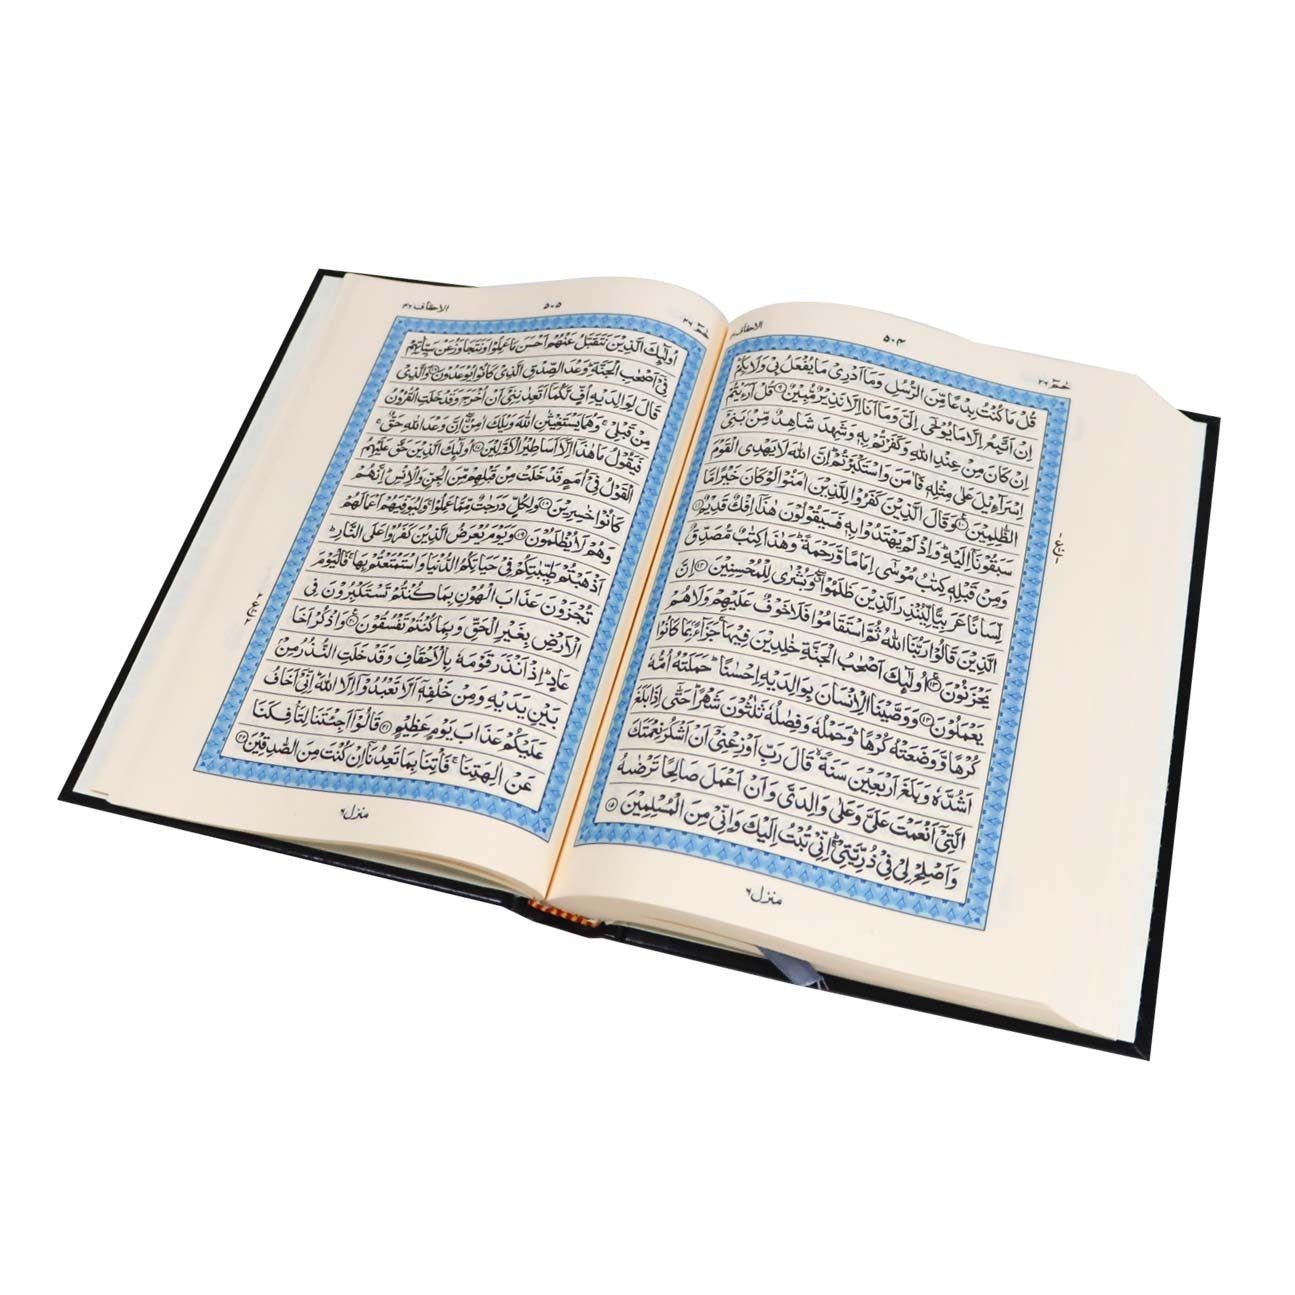 الاحقاف ٤٦
٥٠٤
حٰمٓ ٢٦
قُلْ مَا كُنْتُ بِدْعًا مِّنَ الرُّسُلِ وَمَآ اَدْرِیْ مَا یُفْعَلُ بِیْ وَلَا بِكُمْ ؕ
اِنْ اَتَّبِعُ اِلَّا مَا یُوْحٰۤی اِلَیَّ وَمَآ اَنَا اِلَّا نَذِیْرٌ مُّبِیْنٌ ۹ قُلْ اَرَءَیْتُمْ
اِنْ كَانَ مِنْ عِنْدِ اللّٰهِ وَكَفَرْتُمْ بِهٖ وَشَهِدَ شَاهِدٌ مِّنْۢ بَنِیْۤ
اِسْرَآءِیْلَ عَلٰی مِثْلِهٖ فَاٰمَنَ وَاسْتَكْبَرْتُمْ ؕ اِنَّ اللّٰهَ لَا یَهْدِی الْقَوْمَ
الظّٰلِمِیْنَ ۱۰ وَقَالَ الَّذِیْنَ كَفَرُوْا لِلَّذِیْنَ اٰمَنُوْا لَوْ كَانَ خَیْرًا مَّا
سَبَقُوْنَاۤ اِلَیْهِ ؕ وَاِذْ لَمْ یَهْتَدُوْا بِهٖ فَسَیَقُوْلُوْنَ هٰذَاۤ اِفْكٌ قَدِیْمٌ ۱۱
وَمِنْ قَبْلِهٖ كِتٰبُ مُوْسٰۤی اِمَامًا وَّرَحْمَةً ؕ وَهٰذَا كِتٰبٌ مُّصَدِّقٌ
لِّسَانًا عَرَبِیًّا لِّیُنْذِرَ الَّذِیْنَ ظَلَمُوْا ۖ وَبُشْرٰی لِلْمُحْسِنِیْنَ ۱۲ اِنَّ
الَّذِیْنَ قَالُوْا رَبُّنَا اللّٰهُ ثُمَّ اسْتَقَامُوْا فَلَا خَوْفٌ عَلَیْهِمْ وَلَا هُمْ
یَحْزَنُوْنَ ۱۳ اُولٰٓئِكَ اَصْحٰبُ الْجَنَّةِ خٰلِدِیْنَ فِیْهَا ۚ جَزَآءًۢ بِمَا كَانُوْا
یَعْمَلُوْنَ ۱۴ وَوَصَّیْنَا الْاِنْسَانَ بِوَالِدَیْهِ اِحْسٰنًا ؕ حَمَلَتْهُ اُمُّهٗ
كُرْهًا وَّوَضَعَتْهُ كُرْهًا ؕ وَحَمْلُهٗ وَفِصٰلُهٗ ثَلٰثُوْنَ شَهْرًا ؕ حَتّٰۤی اِذَا بَلَغَ
اَشُدَّهٗ وَبَلَغَ اَرْبَعِیْنَ سَنَةً ۙ قَالَ رَبِّ اَوْزِعْنِیْۤ اَنْ اَشْكُرَ نِعْمَتَكَ
الَّتِیْۤ اَنْعَمْتَ عَلَیَّ وَعَلٰی وَالِدَیَّ وَاَنْ اَعْمَلَ صَالِحًا تَرْضٰىهُ
وَاَصْلِحْ لِیْ فِیْ ذُرِّیَّتِیْ ۚؕ اِنِّیْ تُبْتُ اِلَیْكَ وَاِنِّیْ مِنَ الْمُسْلِمِیْنَ ۱۵
منزل ٦
الاحقاف ٤٦
٥٠٥
حٰمٓ ٢٦
اُولٰٓئِكَ الَّذِیْنَ نَتَقَبَّلُ عَنْهُمْ اَحْسَنَ مَا عَمِلُوْا وَنَتَجَاوَزُ عَنْ سَیِّاٰتِهِمْ
فِیْۤ اَصْحٰبِ الْجَنَّةِ ؕ وَعْدَ الصِّدْقِ الَّذِیْ كَانُوْا یُوْعَدُوْنَ ۱۶ وَالَّذِیْ
قَالَ لِوَالِدَیْهِ اُفٍّ لَّكُمَاۤ اَتَعِدٰنِنِیْۤ اَنْ اُخْرَجَ وَقَدْ خَلَتِ الْقُرُوْنُ
مِنْ قَبْلِیْ ۚ وَهُمَا یَسْتَغِیْثٰنِ اللّٰهَ وَیْلَكَ اٰمِنْ ۖ اِنَّ وَعْدَ اللّٰهِ حَقٌّ ۖۚ
فَیَقُوْلُ مَا هٰذَاۤ اِلَّاۤ اَسَاطِیْرُ الْاَوَّلِیْنَ ۱۷ اُولٰٓئِكَ الَّذِیْنَ حَقَّ عَلَیْهِمُ
الْقَوْلُ فِیْۤ اُمَمٍ قَدْ خَلَتْ مِنْ قَبْلِهِمْ مِّنَ الْجِنِّ وَالْاِنْسِ ؕ اِنَّهُمْ
كَانُوْا خٰسِرِیْنَ ۱۸ وَلِكُلٍّ دَرَجٰتٌ مِّمَّا عَمِلُوْا ۚ وَلِیُوَفِّیَهُمْ اَعْمَالَهُمْ
وَهُمْ لَا یُظْلَمُوْنَ ۱۹ وَیَوْمَ یُعْرَضُ الَّذِیْنَ كَفَرُوْا عَلَی النَّارِ ؕ
اَذْهَبْتُمْ طَیِّبٰتِكُمْ فِیْ حَیَاتِكُمُ الدُّنْیَا وَاسْتَمْتَعْتُمْ بِهَا ۚ فَالْیَوْمَ
تُجْزَوْنَ عَذَابَ الْهُوْنِ بِمَا كُنْتُمْ تَسْتَكْبِرُوْنَ فِی
الْاَرْضِ بِغَیْرِ الْحَقِّ وَبِمَا كُنْتُمْ تَفْسُقُوْنَ ۲۰ وَاذْكُرْ اَخَا
عَادٍ ؕ اِذْ اَنْذَرَ قَوْمَهٗ بِالْاَحْقَافِ وَقَدْ خَلَتِ النُّذُرُ مِنْۢ
بَیْنِ یَدَیْهِ وَمِنْ خَلْفِهٖۤ اَلَّا تَعْبُدُوْۤا اِلَّا اللّٰهَ ؕ اِنِّیْۤ اَخَافُ
عَلَیْكُمْ عَذَابَ یَوْمٍ عَظِیْمٍ ۲۱ قَالُوْۤا اَجِئْتَنَا لِتَاْفِكَنَا
عَنْ اٰلِهَتِنَا ۚ فَاْتِنَا بِمَا تَعِدُنَاۤ اِنْ كُنْتَ مِنَ الصّٰدِقِیْنَ ۲۲
منزل ٦